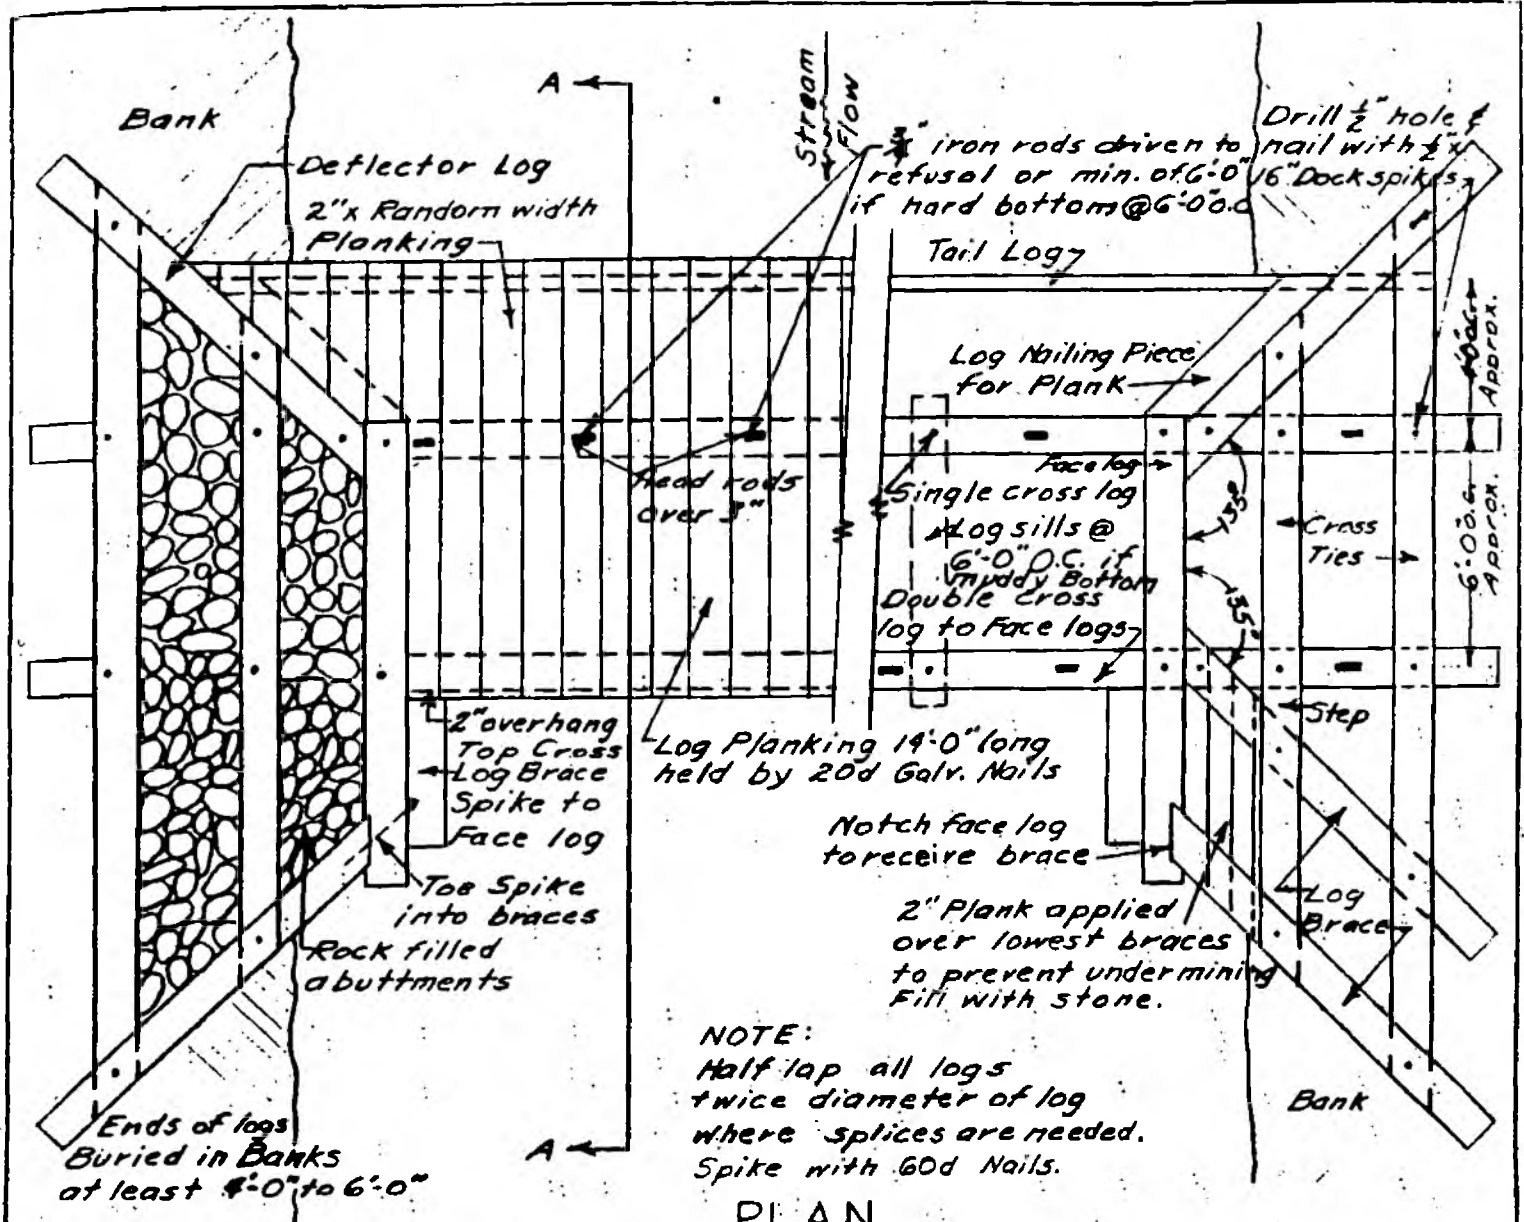 A
Stream
Flow
Bank
Deflector Log
2"x Random width
Planking
" iron rods driven to
refusal or min. of 6'-0"
if hard bottom @ 6'-0" o.c
Drill 1/2" hole &
nail with 1/2"x
16" Dock spikes
Tail Log
Log Nailing Piece
for Plank
Approx.
Head rods
over 3"
Face log
Single cross log
Log sills @
6'-0" O.C. if
muddy Bottom
Double cross
log to Face logs
135°
135°
Cross
Ties
6'-0" o.c.
Approx.
Step
2" overhang
Top Cross
Log Brace
Spike to
Face log
Log Planking 14'-0" long
held by 20d Galv. Nails
Notch face log
to receive brace
Toe Spike
into braces
Rock filled
abuttments
2" Plank applied
over lowest braces
to prevent undermining
Fill with stone.
Log
Brace
NOTE:
Half lap all logs
twice diameter of log
where splices are needed.
Spike with 60d Nails.
Bank
Ends of logs
Buried in Banks
at least 4'-0" to 6'-0"
A
PLAN